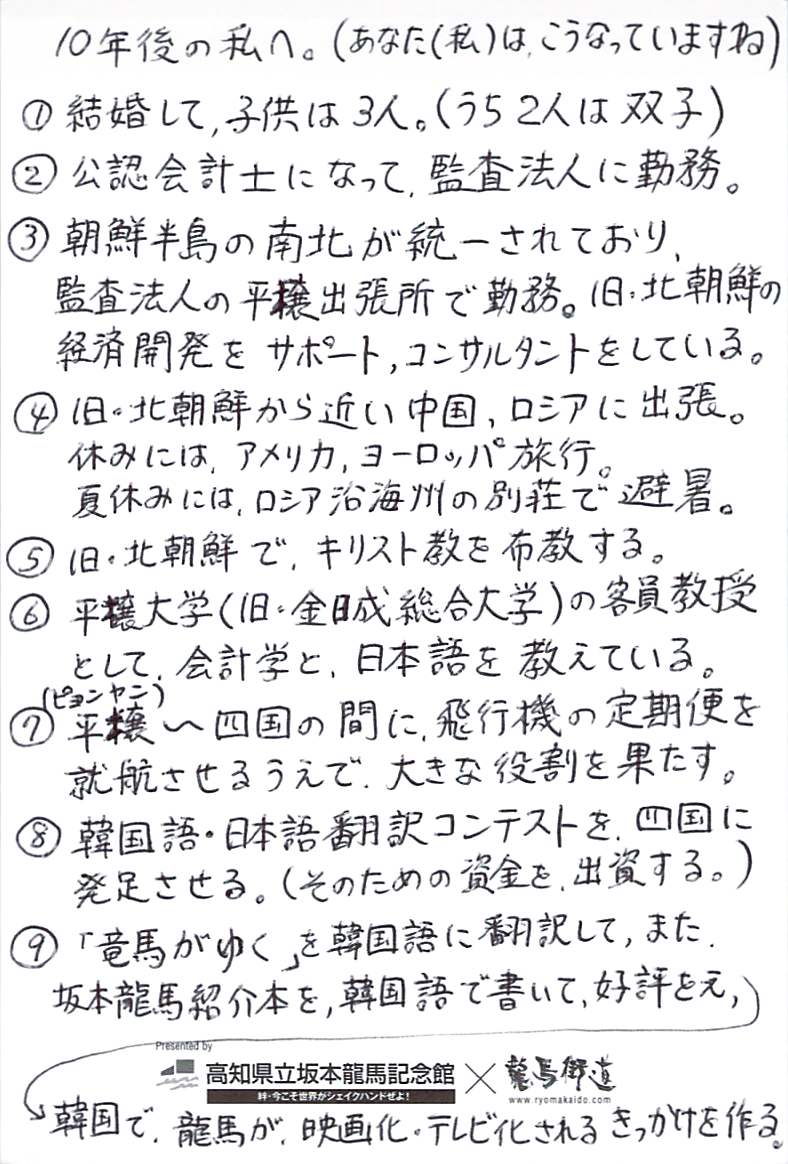 10年後の私へ。(あなた(私)は、こうなっていますね)
① 結婚して、子供は3人。(うち2人は双子)
② 公認会計士になって、監査法人に勤務。
③ 朝鮮半島の南北が統一されており、
監査法人の平壌出張所で勤務。旧・北朝鮮の
経済開発をサポート,コンサルタントをしている。
④ 旧・北朝鮮から近い中国、ロシアに出張。
休みには、アメリカ,ヨーロッパ旅行。
夏休みには、ロシア沿海州の別荘で避暑。
⑤ 旧・北朝鮮で、キリスト教を布教する。
⑥ 平壌大学(旧・金日成総合大学)の客員教授
として、会計学と、日本語を教えている。
(ピョンヤン)
⑦ 平壌〜四国の間に、飛行機の定期便を
就航させるうえで、大きな役割を果たす。
⑧ 韓国語・日本語翻訳コンテストを、四国に
発足させる。(そのための資金を、出資する。)
⑨ 「竜馬がゆく」を韓国語に翻訳して,また、
坂本龍馬紹介本を,韓国語で書いて、好評をえ,
Presented by
高知県立坂本龍馬記念館×龍馬街道
絆・今こそ世界がシェイクハンドぜよ!
www.ryomakaido.com
韓国で、龍馬が、映画化・テレビ化されるきっかけを作る。